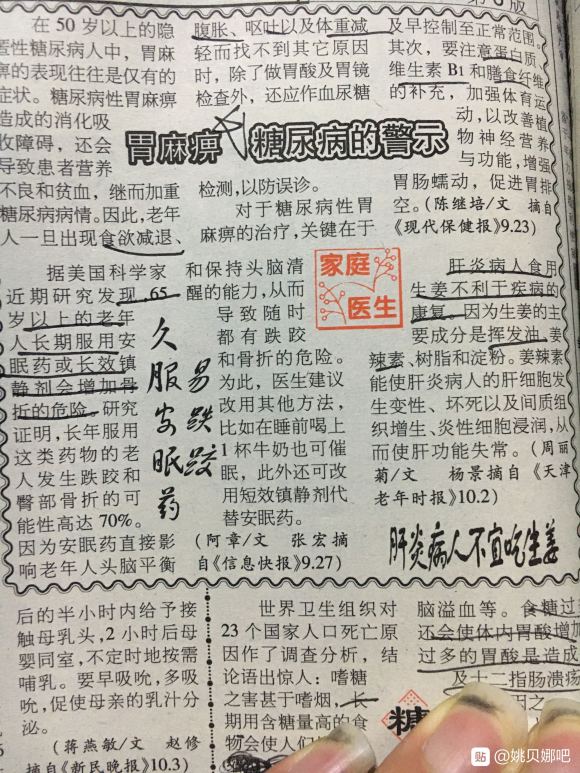 版
胃麻痹 糖尿病的警示
在50岁以上的隐
匿性糖尿病人中，胃麻
痹的表现往往是仅有的
症状。糖尿病性胃麻痹
造成的消化吸
收障碍，还会
导致患者营养
不良和贫血，继而加重
糖尿病病情。因此，老年
人一旦出现食欲减退、
腹胀、呕吐以及体重减
轻而找不到其它原因
时，除了做胃酸及胃镜
检查外，还应作血尿糖
检测，以防误诊。
对于糖尿病性胃
麻痹的治疗，关键在于
及早控制至正常范围。
其次，要注意蛋白质、
维生素B1和膳食纤维
的补充，加强体育运
动，以改善植
物神经营养
与功能，增强
胃肠蠕动，促进胃排
空。(陈继培/文 摘自
《现代保健报》9.23)
久服安眠药
易跌跤
据美国科学家
近期研究发现，65
岁以上的老年
人长期服用安
眠药或长效镇
静剂会增加骨
折的危险。研究
证明，长年服用
这类药物的老
人发生跌跤和
臀部骨折的可
能性高达70%。
因为安眠药直接影
响老年人头脑平衡
和保持头脑清
醒的能力，从而
导致随时
都有跌跤
和骨折的危险。
为此，医生建议
改用其他方法，
比如在睡前喝上
1杯牛奶也可催
眠，此外还可改
用短效镇静剂代
替安眠药。
(阿章/文 张宏摘
自《信息快报》9.27)
家庭
医生
肝炎病人食用
生姜不利于疾病的
康复。因为生姜的主
要成分是挥发油、姜
辣素、树脂和淀粉。姜辣素
能使肝炎病人的肝细胞发
生变性、坏死以及间质组
织增生、炎性细胞浸润，从
而使肝功能失常。(周丽
菊/文 杨景摘自《天津
老年时报》10.2)
肝炎病人不宜吃生姜
后的半小时内给予接
触母乳头，2小时后母
婴同室，不定时地按需
哺乳。要早吸吮，多吸
吮，促使母亲的乳汁分
泌。
(蒋燕敏/文 赵修
摘自《新民晚报》10.3)
世界卫生组织对
23个国家人口死亡原
因作了调查分析，结
论语出惊人：嗜糖
之害甚于嗜烟，长
期用含糖量高的食
物会使人们
脑溢血等。食糖过
还会使体内胃酸增加
过多的胃酸是造成
及十二指肠溃疡
糖
贴 @姚贝娜吧